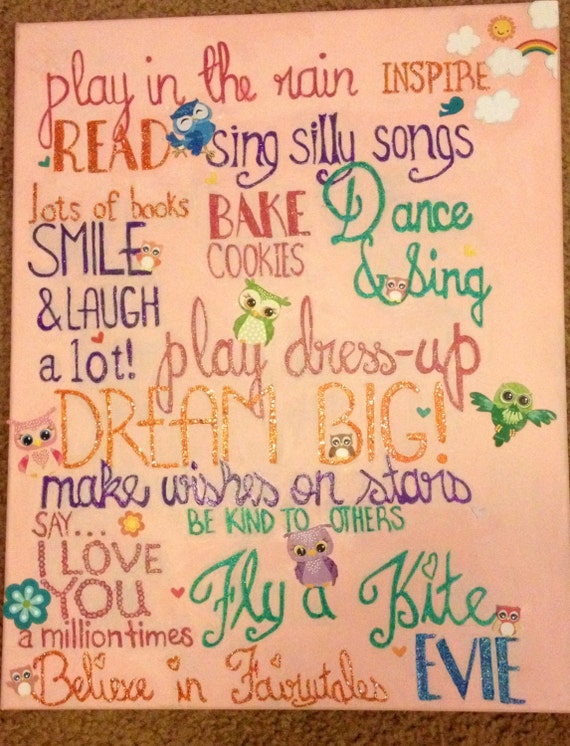 play in the rain
INSPIRE
READ
lots of books
sing silly songs
SMILE
& LAUGH
a lot!
BAKE
COOKIES
Dance
& Sing
play dress-up
DREAM BIG!
make wishes on stars
SAY...
I LOVE
YOU
a million times
BE KIND TO OTHERS
Fly a Kite
Believe in Fairytales
EVIE